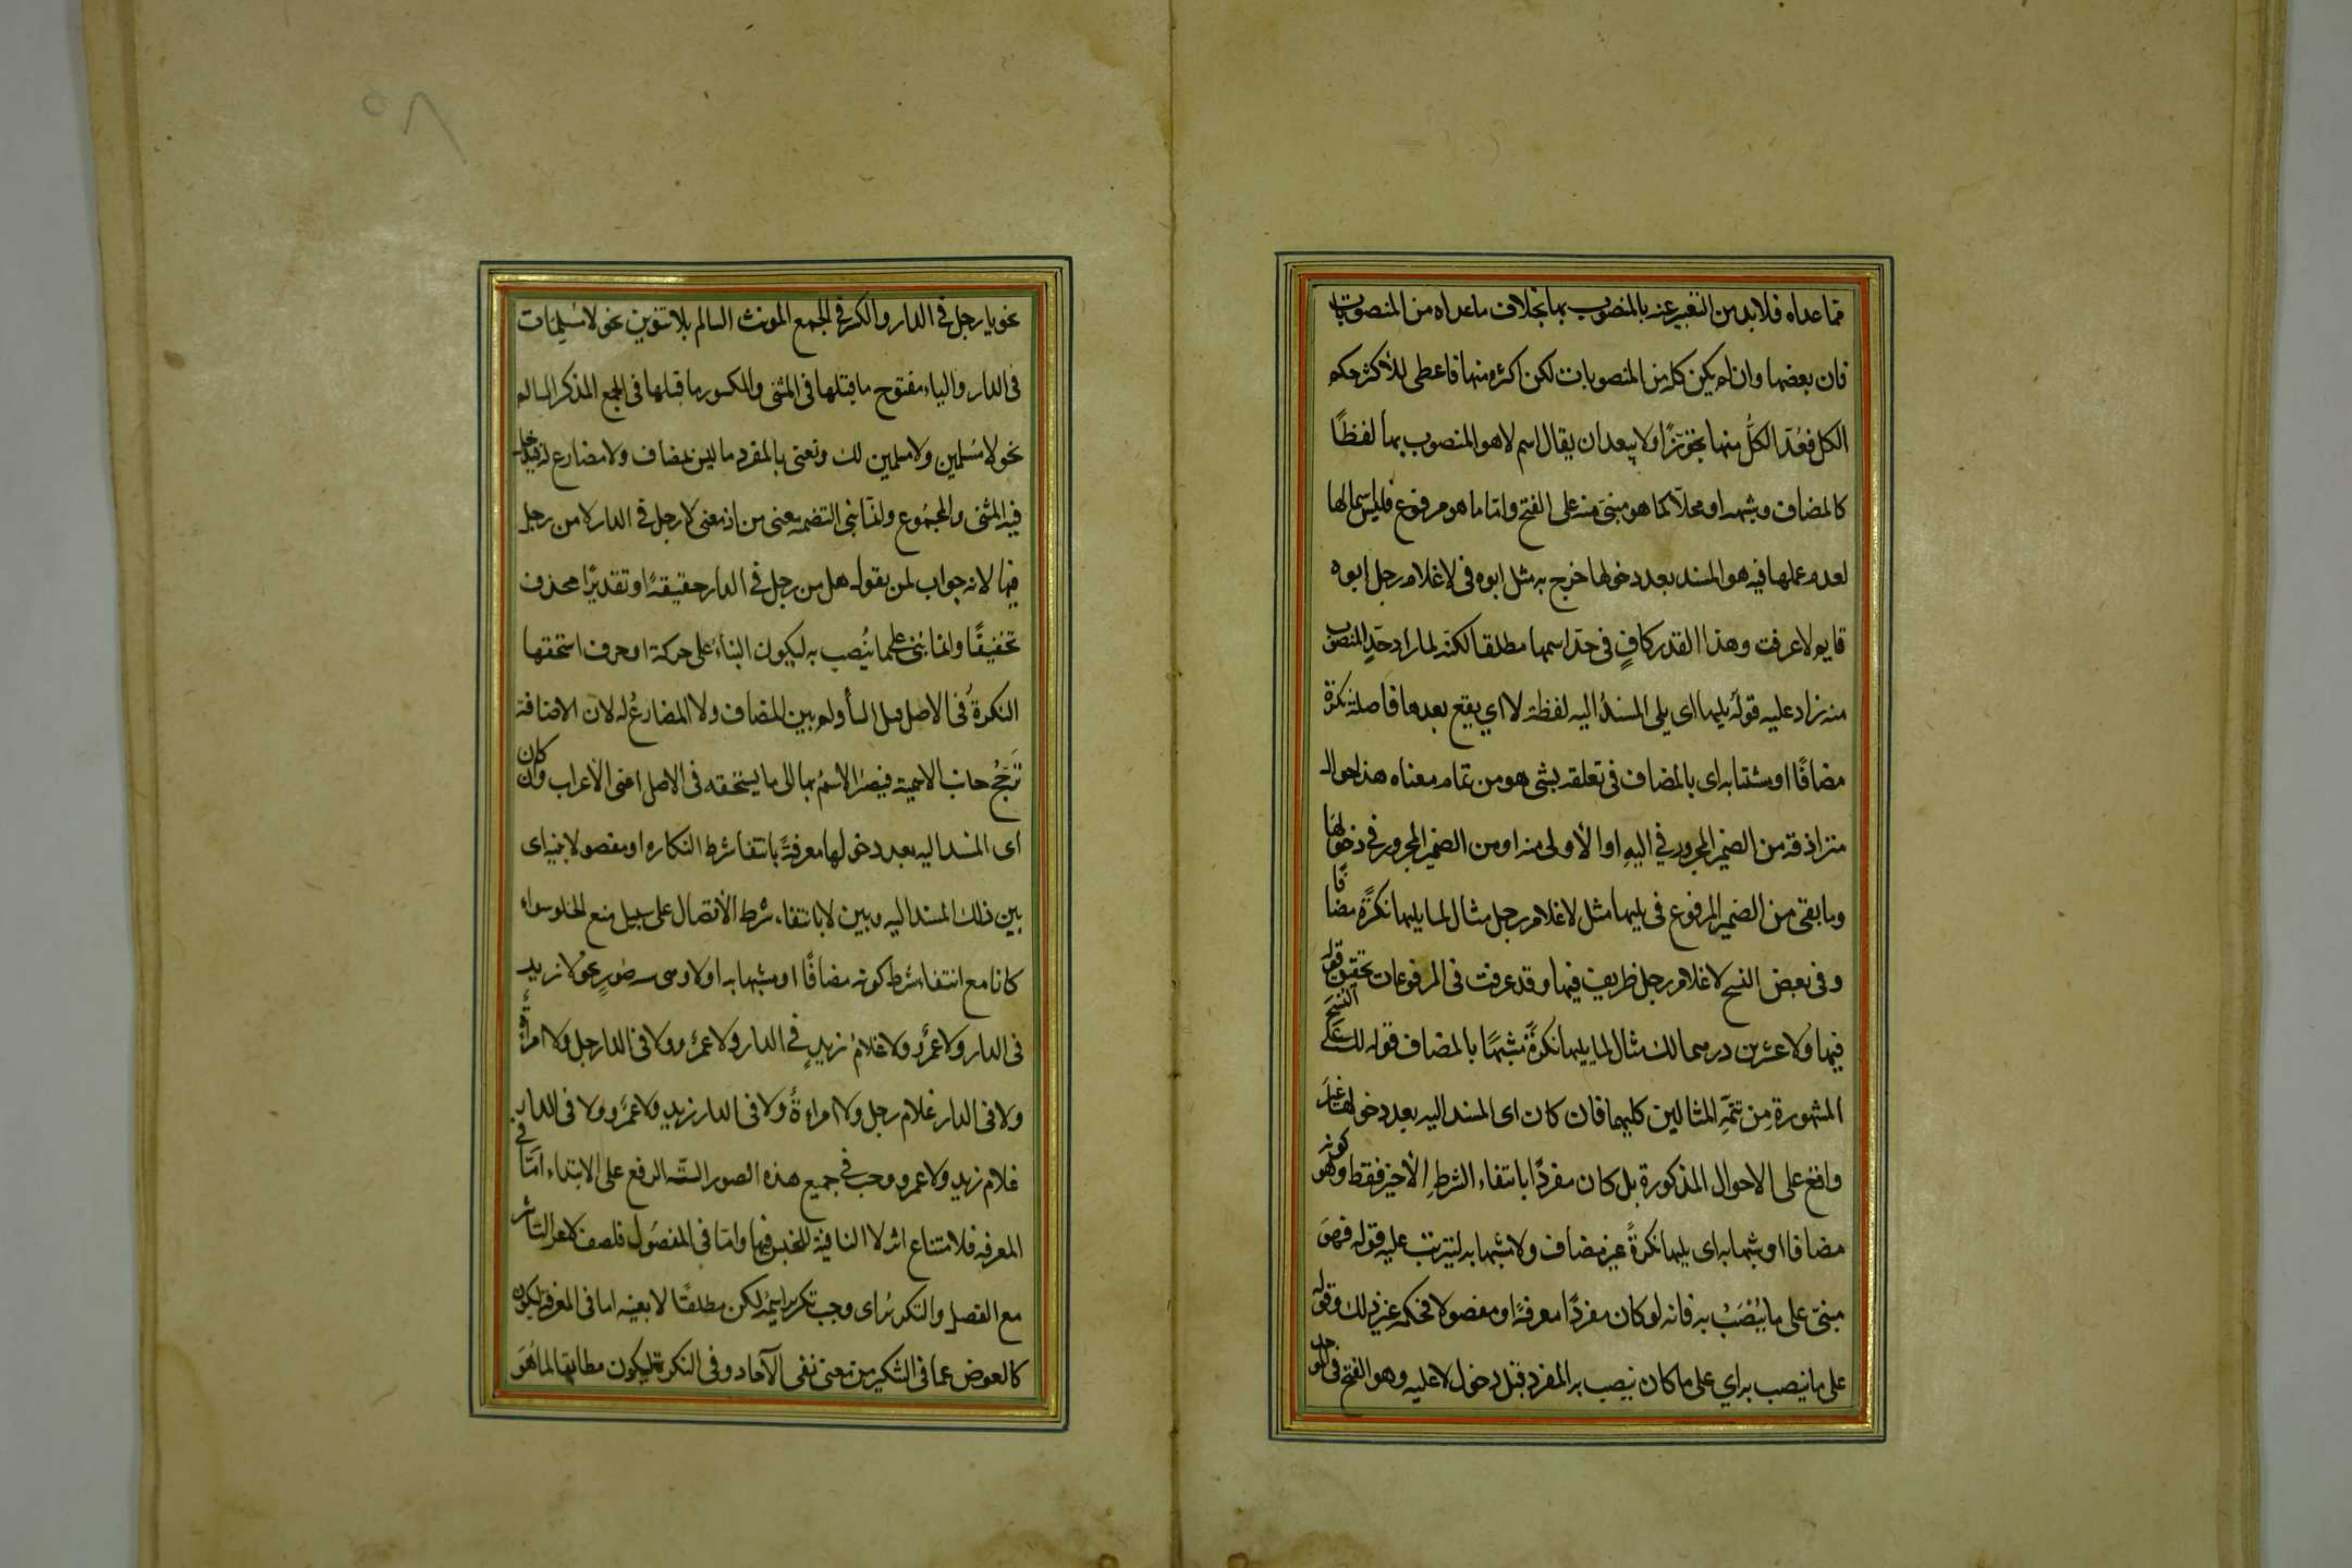 مما عداه فلا بد من التعبير عنه بالمنصوب بها بخلاف ما عداه من المنصوبات
فان بعضها وان لم يكن كله من المنصوبات لكن اكثره منها فاعطى للاكثر حكم
الكل فعُدّ الكلُّ منها تجوّزًا ولا يبعد ان يقال اسم لا هو المنصوب بها لفظًا
كالمضاف وشبهه او محلّا كما هو مبنى منه على الفتح واما ما هو مرفوع فليس اسما لها
لعدم عملها فيه هو المسند بعد دخولها خرج به مثل ابوه فى لا غلام رجل ابوه
قايم لا عرفت وهذا القدر كافٍ فى حدّ اسمها مطلقا لكنّه لما اراد حدّ المنصوب
منه زاد عليه قولَه يليها اى يلى المسندُ اليه لفظة لا اي يقع بعدها فاصلة نكرة
مضافًا او مشبّها به اى بالمضاف فى تعلقه بشئ هو من تمام معناه هذه احوال
مترادفة من الضمير المجرور في اليه او الاولى منه او من الضمير المجرور فى دخولها
وما بقى من الضمير المرفوع فى يليها مثل لا غلام رجل مثال لما يليها نكرةً مضافًا
وفى بعض النسخ لا غلام رجل ظريف فيها وقد عرفت فى المرفوعات تحقيق قوله
فيها ولا عشرين درهما لك مثال لما يليها نكرةً مشبّهًا بالمضاف قوله لك على النسخ
المشهورة مِن تتمّهِ المثالين كليهما فان كان اى المسند اليه بعد دخولها غير
واقع على الاحوال المذكورة بل كان مفردًا بانتفاء الشرطِ الأخير فقط وهو كونه
مضافا او مشبها به اى يليها نكرةً غير مضاف ولا مشبها به ليترتب عليه قوله فهوَ
مبنىّ على ما يُنصَبُ به فانه لو كان مفردًا معرفةً او مفصولا فحكمه غير ذلك وقوله
على ما ينصب به اي على ما كان ينصب به المفرد قبل دخول لا عليه وهو الفتح فى الموحد
نحو يا رجل فى الدار والكسر فى الجمع المونث السالم بلا تنوين نحو لا مُسلِمَات
فى الدار والياء مفتوح ما قبلها فى المثنى والمكسور ما قبلها فى الجمع المذكر السالم
نحو لا مُسلمين ولا مسلمين لك ونعنى بالمفرد ما ليس بمضاف ولا مضارع له فيدخل
فيه المثنى والمجمُوع وانما بنى لتضمنه معنى من اذ معنى لا رجل فى الدار لا من رجل
فيها لانه جواب لمن يقول هل من رجل فى الدار حقيقةً او تقديرًا فحذف
تخفيفًا وانما بُنى على ما يُنصب به ليكون البناءُ على حركة او حرف استحقها
النكرةُ فى الاصل قبل البنأ ولم يبن المضاف ولا المضارعُ له لان الاضافة
تَرَجّحُ جانب الاسمية فيصير الاسمُ بها الى ما يستحقه فى الاصل اعنى الاعراب وان كان
اى المسند اليه بعد دخولها معرفةً بانتفا شرط النكاره او مفصولا بينه اى
بين ذلك المسند اليه وبين لا بانتفاء شرط الاتصال على سبيل منع الخلو سواء
كانا مع انتفاء شرط كونه مضافًا او مشبها به او لا وهى ستّ صُورٍ نحوُ لا زيد
فى الدار ولا عمرٌو ولا غلامُ زيدٍ في الدار ولا عمرٌو ولا فى الدار رجل ولا امرأة
ولا فى الدار غلام رجل ولا امراءة ولا فى الدار زيد ولا عمرٌو ولا فى الدار
غلام زيدٍ ولا عمرو وجب في جميع هذه الصور الستّه الرفع على الابتداء امّا فى
المعرفه فلامتناع اثر لا النافية للجنس فيها وامّا فى المفصُول فلضعف لا عن التاثير
مع الفصل والتكريرُ اى وجب تكرير اسمِهِ لكن مطلقًا لا بعينه اما فى المعرفة ليكون
كالعوض عما فى التنكير من معنى نفى الآحاد وفى النكرة ليكون مطابقا لما هُوَ